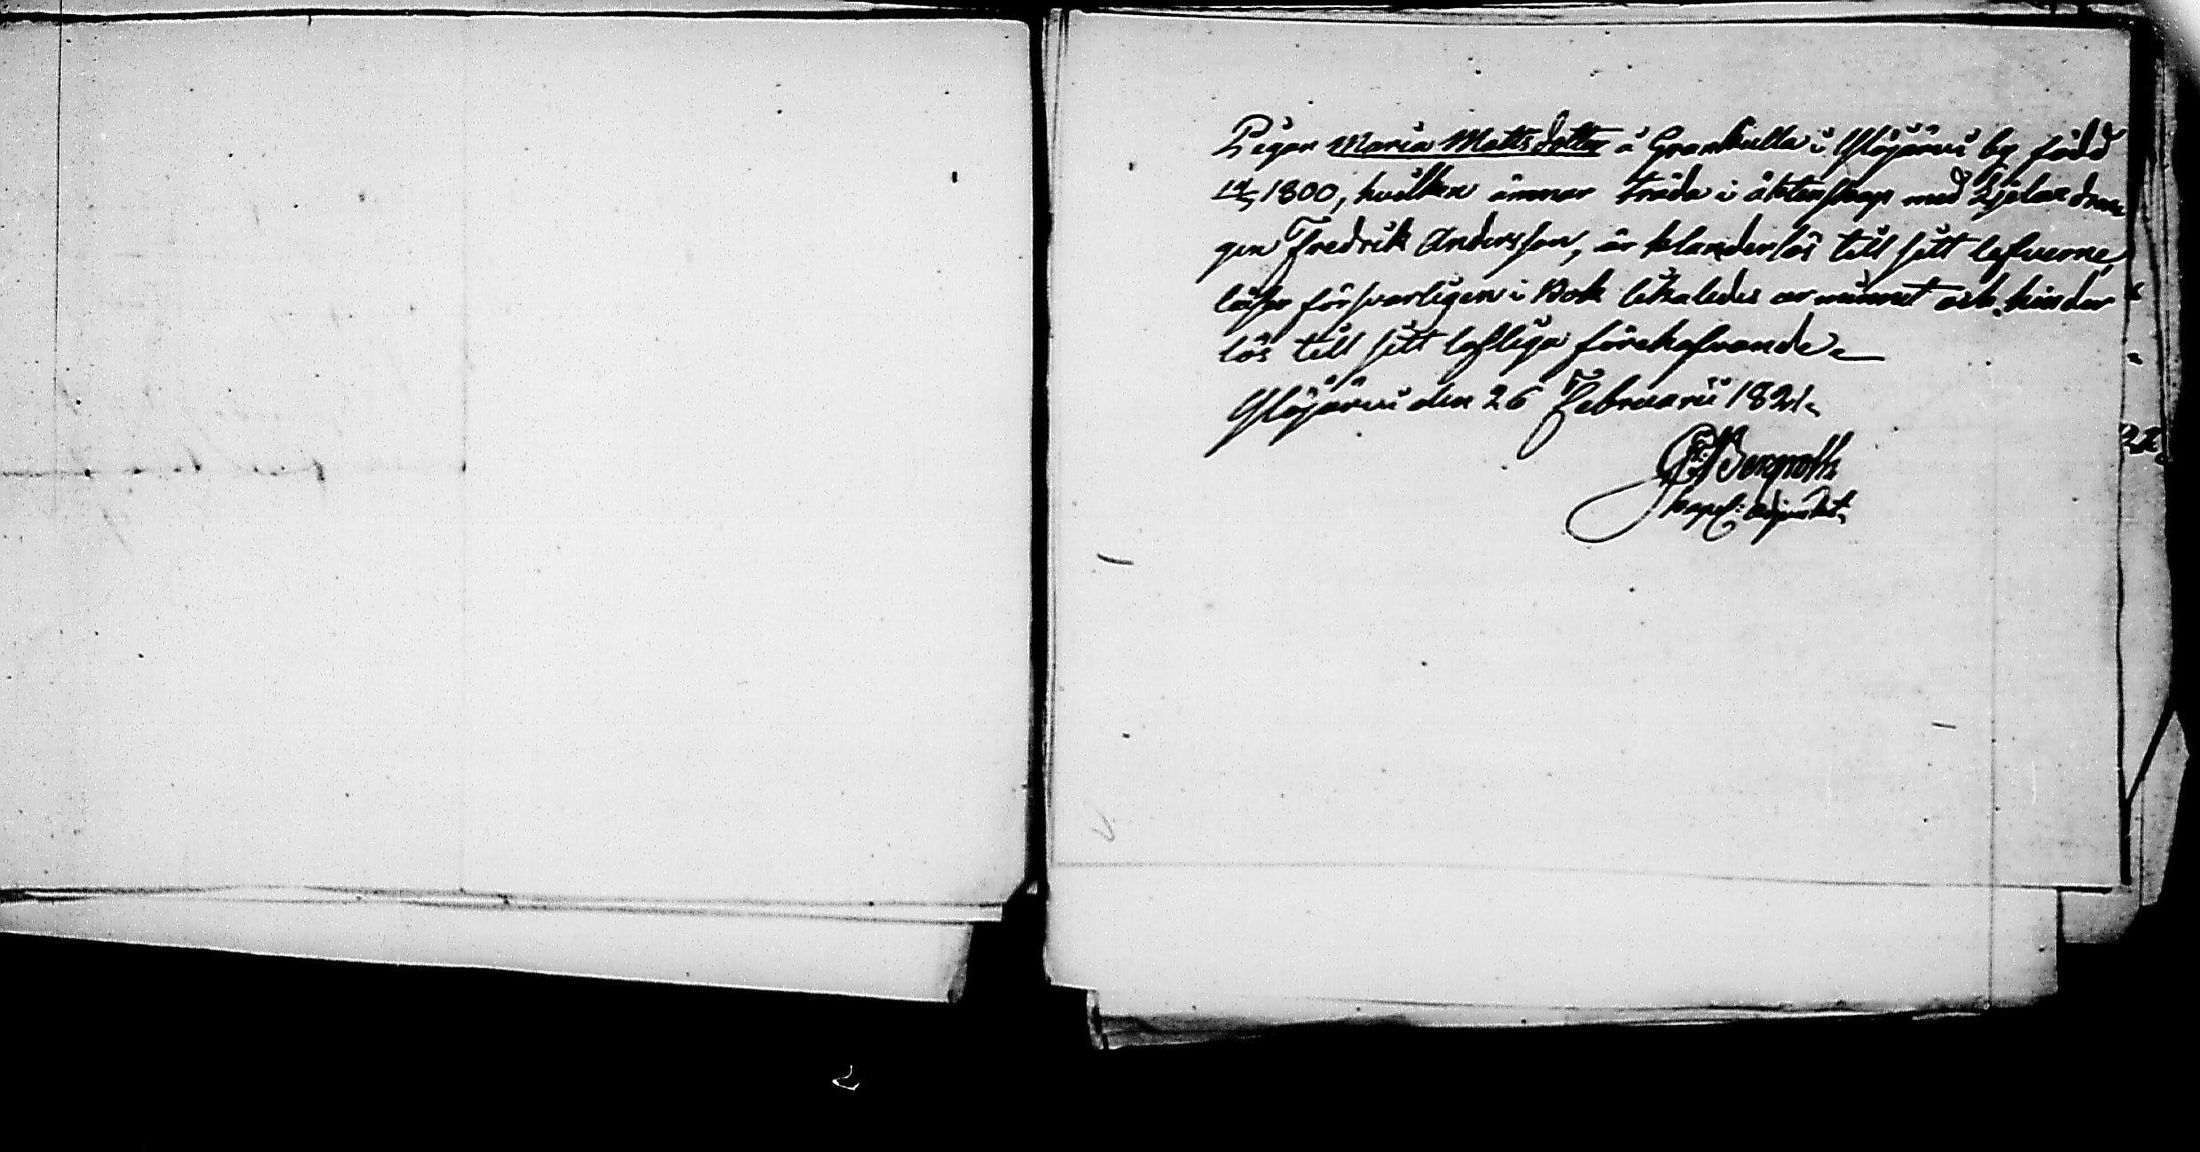 Pigan Maria Matts dotter å Grankulla i Ylöjärvi by född
1800, hvilken ämnar träda i äktenskap med drän
gen Fredrik Andersson, är klanderlös till sitt lefverne,
läser försvarligen i Bok likaledes ur minnet och hinder
lös till sitt lofliga förehafvande.
Ylöjärvi den 26 Februarii 1821.
Bergroth
Kapl: adjunkt.